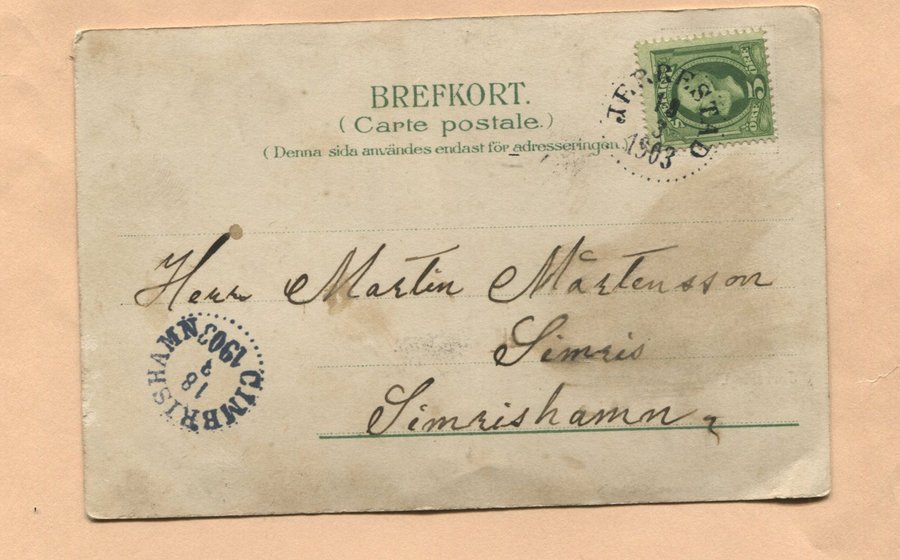 BREFKORT.
(Carte postale.)
(Denna sida användes endast för adresseringen.)
SVERIGE
5
ÖRE
JERRESTAD
1903
Herr Martin Mårtensson
Simris
Simrishamn
CIMBRISHAMN
18
3
1903